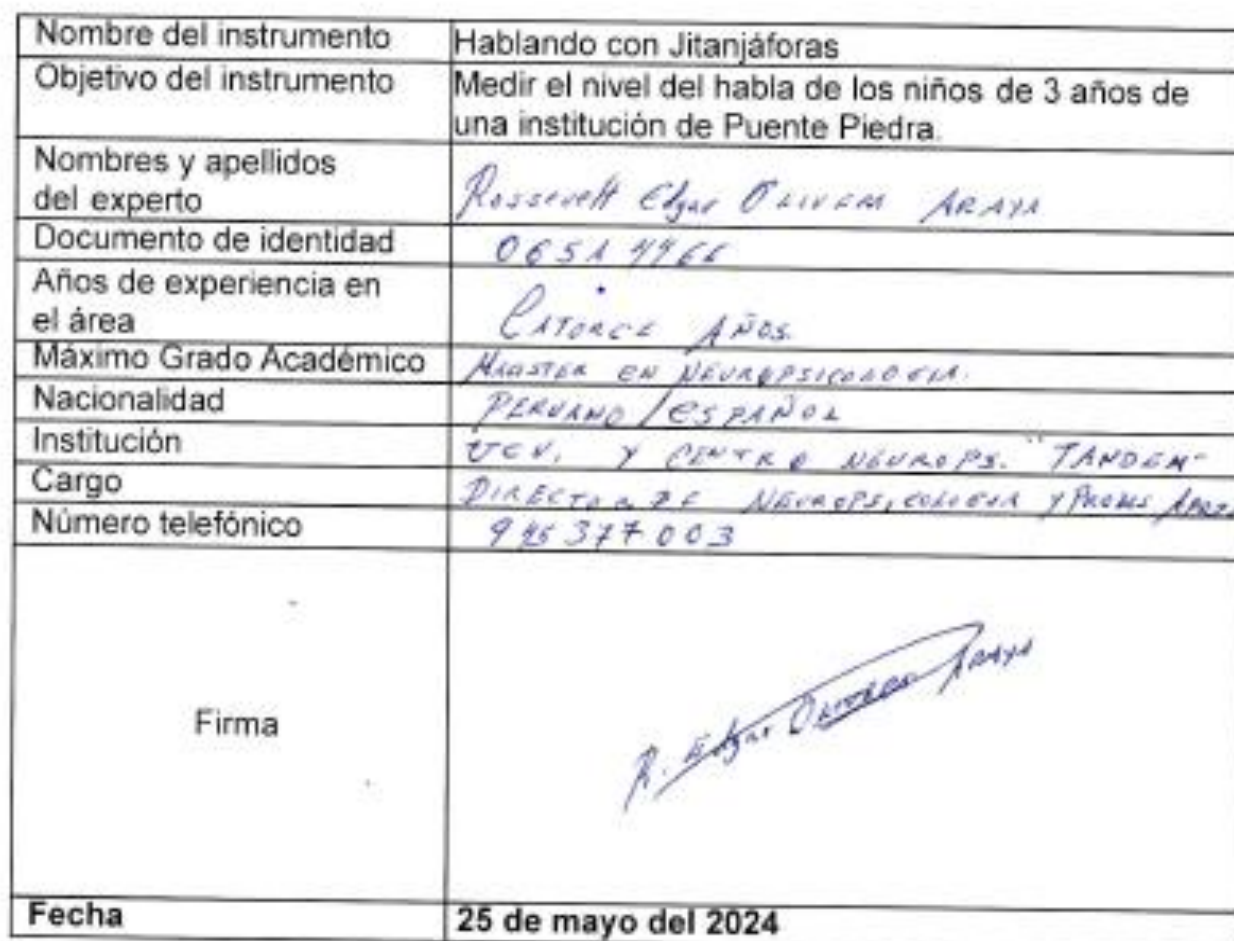 Nombre del instrumento Hablando con Jitanjáforas
Objetivo del instrumento Medir el nivel del habla de los niños de 3 años de
una institución de Puente Piedra.
Nombres y apellidos
del experto Edgar ARAYA
Documento de identidad
Años de experiencia en
el área CATORCE AÑOS.
Máximo Grado Académico EN NEUROPSICOLOGIA.
Nacionalidad PERUANO / ESPAÑOL
Institución UCV. Y CENTRO NEUROPS. "TANDEM"
Cargo DIRECTOR DE NEUROPSICOLOGIA Y
Número telefónico
Firma R. Edgar ARAYA
Fecha 25 de mayo del 2024